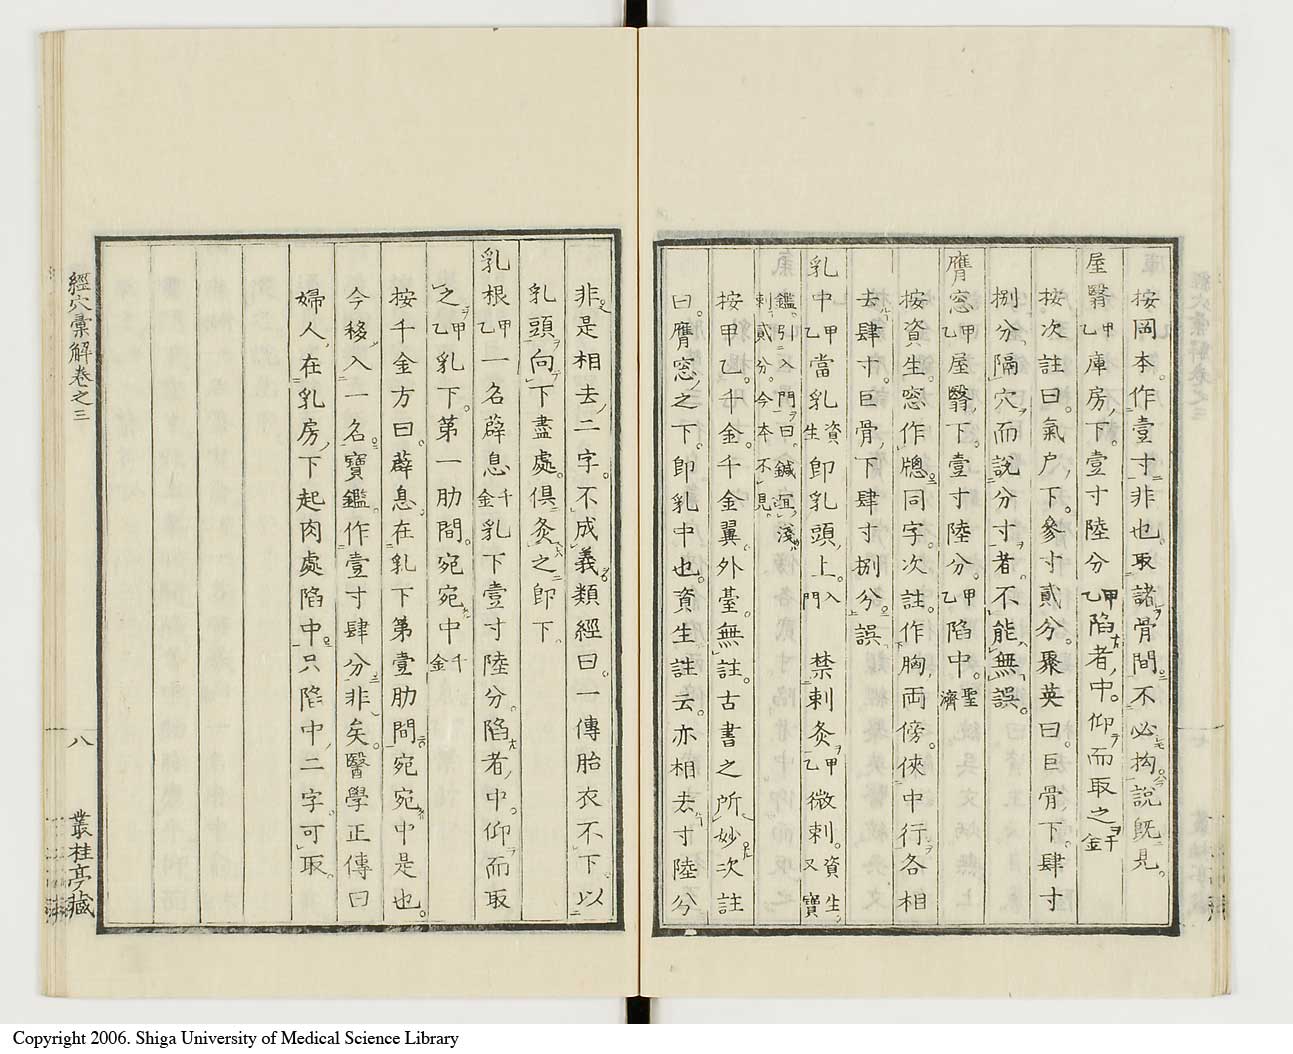 按岡本。作壹寸非也。取諸骨間。不必拘說既見。
屋翳甲乙庫房下。壹寸陸分甲乙陷者中。仰而取之千金
按次註曰。氣戶下。參寸貳分。聚英曰。巨骨下。肆寸
捌分。隔穴而說分寸者。不能無誤。
膺窓甲乙屋翳下。壹寸陸分。甲乙陷中。聖濟
按資生。窓作牕。同字。次註。作胸兩傍。俠中行各相
去肆寸。巨骨下肆寸捌分。誤
乳中甲乙當乳資生卽乳頭上。入門 禁刺灸甲乙微刺。資生又寶
鑑。引入門曰。鍼宜淺刺貳分。今本不見。
按甲乙。千金。千金翼。外臺。無註。古書之所妙次註
曰。膺窓之下。卽乳中也。資生註云。亦相去寸陸分
非是相去二字。不成義類經曰。一傳胎衣不下。以
乳頭向下盡處。俱灸之卽下。
乳根甲乙一名薜息千金乳下壹寸陸分。陷者中。仰而取
之甲乙乳下。第一肋間。宛宛中千金
按千金方曰。薜息。在乳下第壹肋間宛宛中是也。
今移入一名。寶鑑。作壹寸肆分非矣。醫學正傳曰
婦人。在乳房下起肉處陷中。只陷中二字。可取。
經穴彙解卷之三
八
叢桂亭藏
Copyright 2006. Shiga University of Medical Science Library